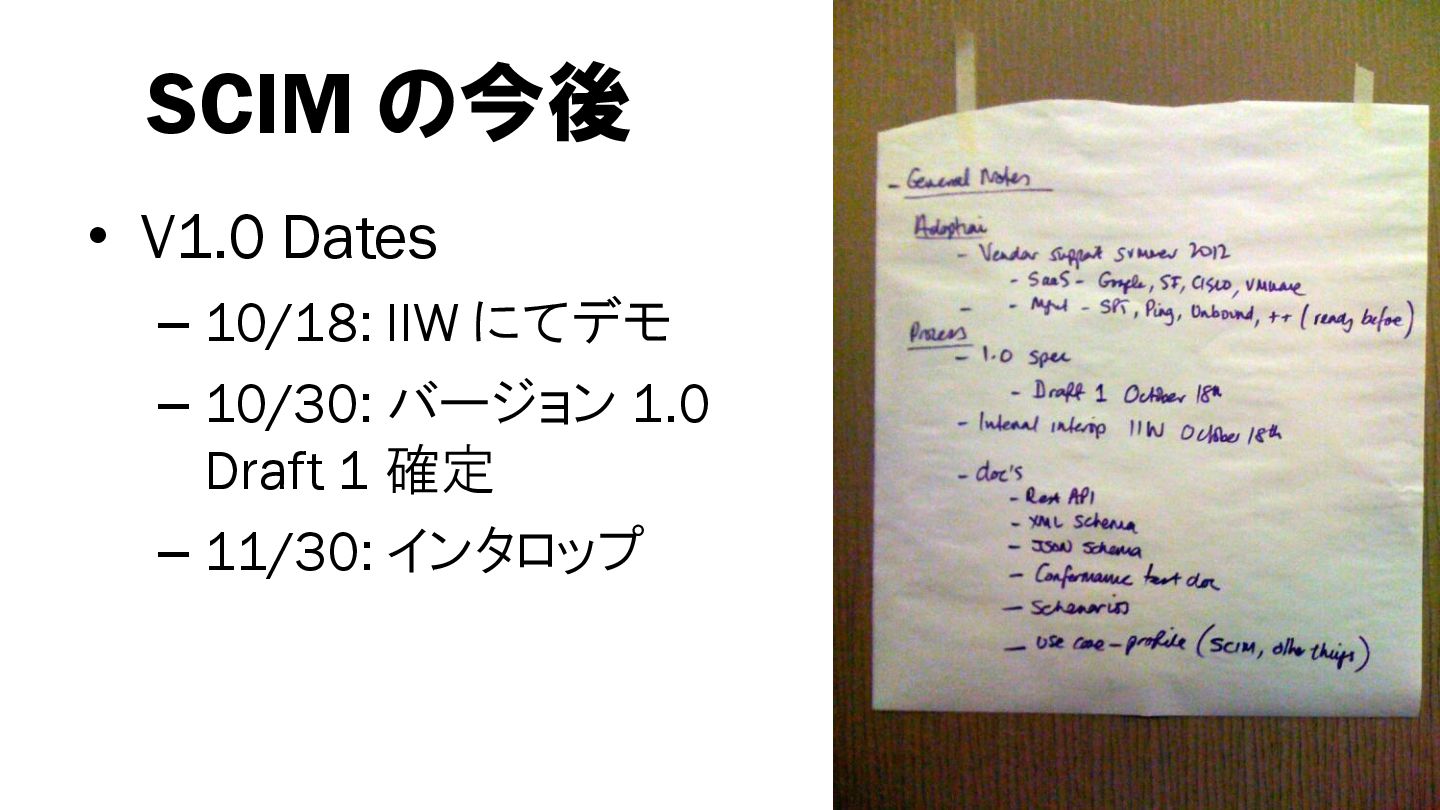 SCIM の今後
• V1.0 Dates
– 10/18: IIW にてデモ
– 10/30: バージョン 1.0
Draft 1 確定
– 11/30: インタロップ
- General Notes
Adoption
- Vendor support summer 2012
- SaaS - Google, SF, CISCO, VMware
- - Mgmt - SPT, Ping, Unbound, ++ (ready before)
Process
- 1.0 spec
- Draft 1 October 18th
- Internal interop IIW October 18th
- doc's
- Rest API
- XML Schema
- JSON Schema
- Conformance test doc
- Schenarios
- use case - profile (SCIM, other things)